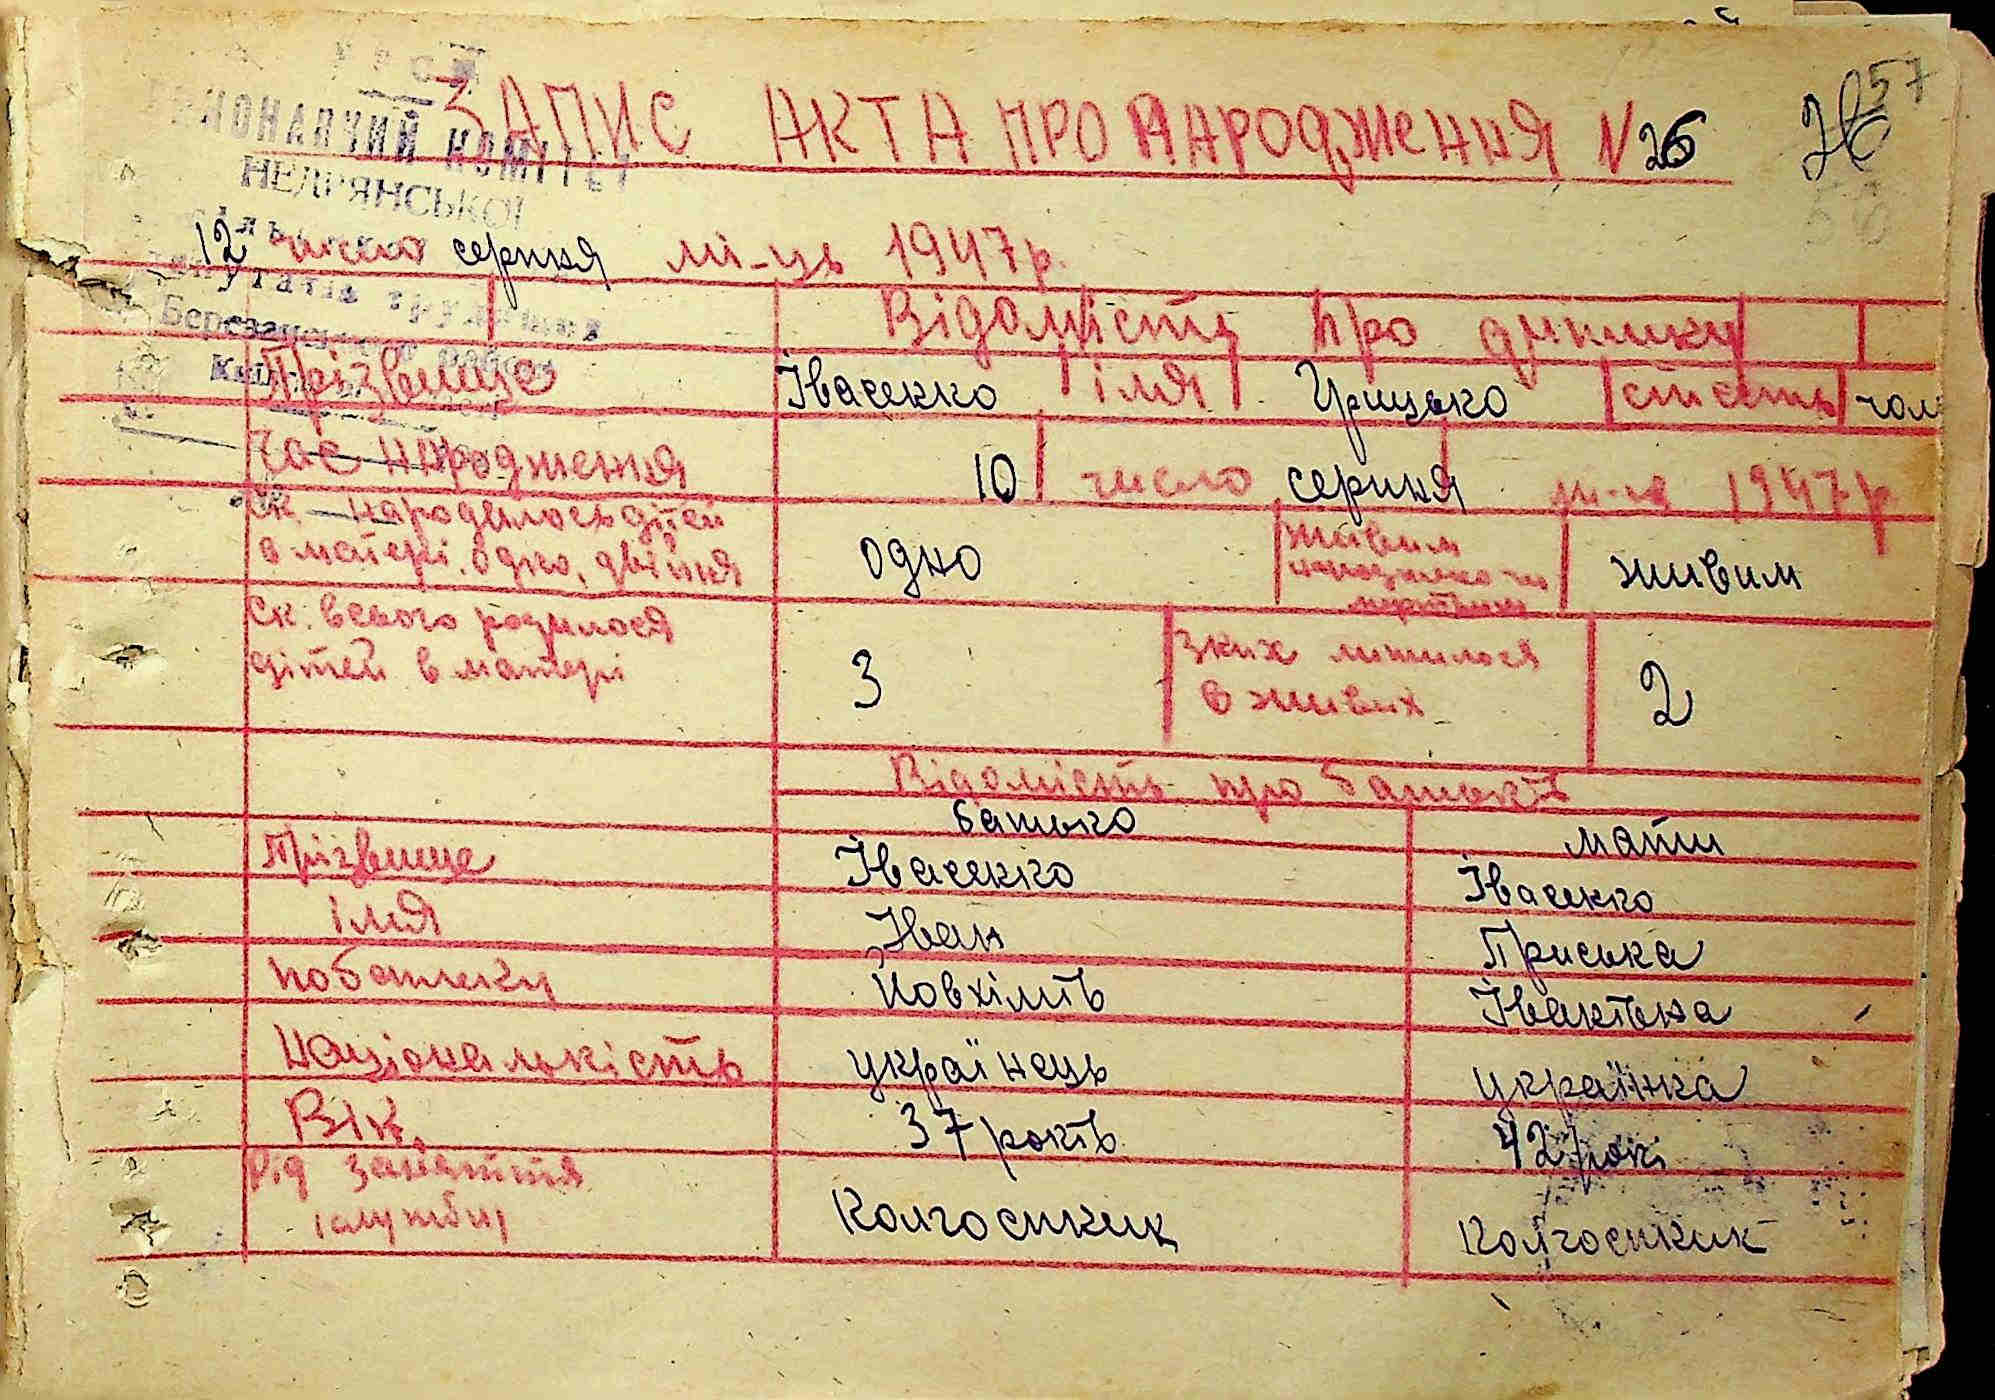 УРСР
ВИКОНАВЧИЙ КОМІТЕТ
НЕДРЯНСЬКОЇ
депутатів трудящих
ЗАПИС АКТА ПРО НАРОДЖЕННЯ N 26
57
12 число серпня мі-ць 1947р.
Відомість про дитину
Прізвище Івасенко імя Грицько стать чол
Час народження 10 число серпня м-ця 1947р
Ск. народилось дітей
в матері, одно, двійня одно живим живим
Ск. всього родилося
дітей в матері 3 зких лишилося
в живих 2
Відомість про батьків
батько мати
Прізвище Івасенко Івасенко
імя Іван Приська
побатьку Йовхімів Іванівна
Національність українець українка
Вік 37 років 42 роки
Рід заняття
службу Колгоспник Колгоспник